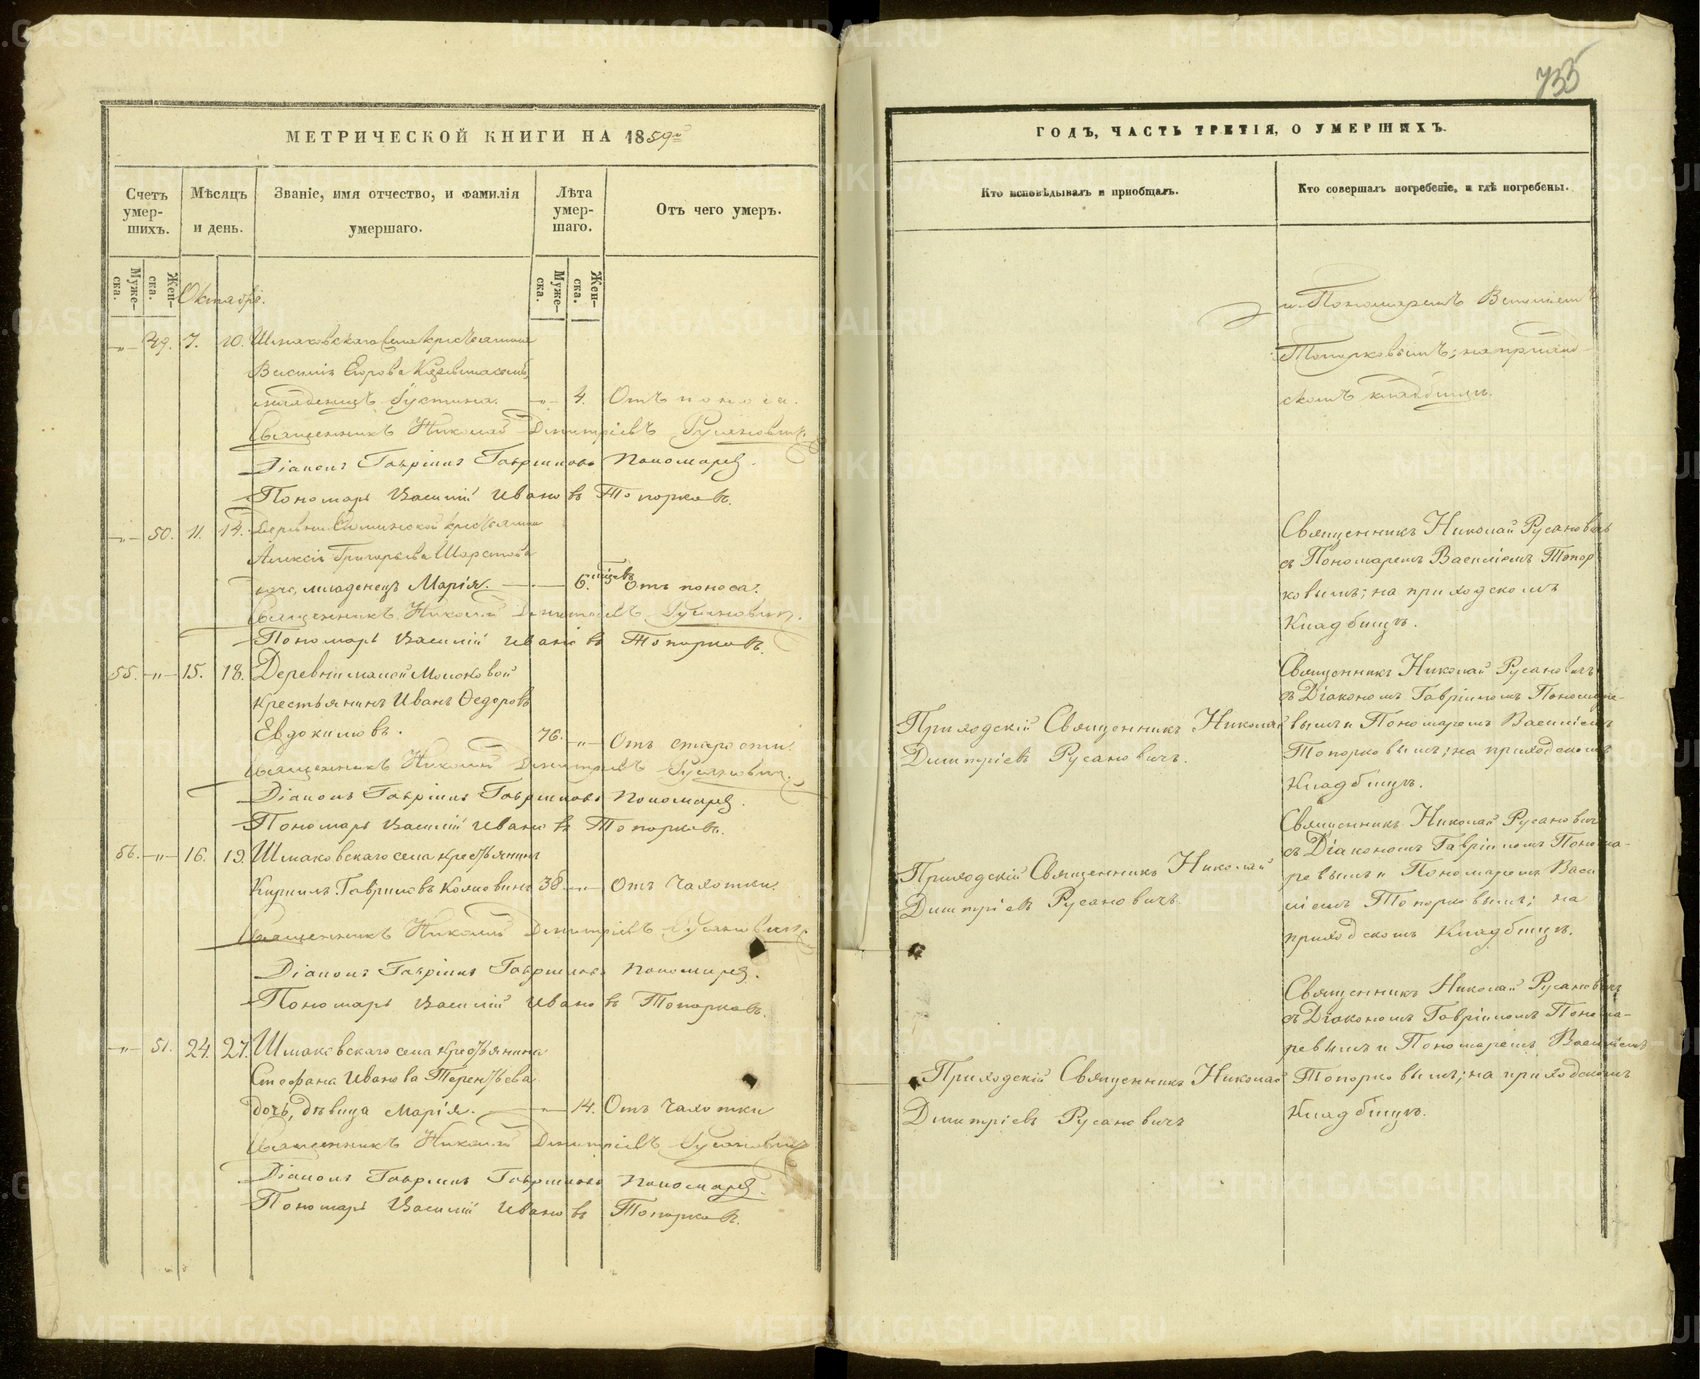 733
МЕТРИЧЕСКОЙ КНИГИ НА 1859й
Счетъ умер-шихъ.
Мѣсяцъ и день.
Званіе, имя отчество, и фамилія умершаго.
Лѣта умер-шаго.
Отъ чего умеръ.
Муже-ска.
Жен-ска.
Муже-ска.
Жен-ска.
Октябрь.
„ 49. 7. 10. Шмаковскаго села крестьянина
Василія Егорова
младенецъ Іустина. „ 4. Отъ поноса.
Священникъ Николай Димитріевъ Русановичъ.
Діаконъ Гавріилъ Гавриловъ Пономарев.
Пономарь Василій Ивановъ Топорковъ.
„ 50. 11. 14. Деревни крестьянина
Алексія Григорьева
дочь, младенецъ Марія. 6. мѣсяцевъ Отъ поноса.
Священникъ Николай Димитріевъ Русановичъ.
Пономарь Василій Ивановъ Топорковъ.
55. „ 15. 18. Деревни малой Молоковой
крестьянинъ Иванъ Ѳедоровъ
Евдокимовъ. 76. „ Отъ старости.
Священникъ Николай Димитріевъ Русановичъ.
Діаконъ Гавріилъ Гавриловъ Пономарев.
Пономарь Василій Ивановъ Топорковъ.
56. „ 16. 19. Шмаковскаго села крестьянинъ
Кирилъ Гавриловъ 38 „ Отъ чахотки.
Священникъ Николай Димитріевъ Русановичъ.
Діаконъ Гавріилъ Гавриловъ Пономарев.
Пономарь Василій Ивановъ Топорковъ.
„ 51. 24. 27. Шмаковскаго села крестьянина
Стефана Иванова Терентьева
дочь, дѣвица Марія. „ 14. Отъ чахотки
Священникъ Николай Димитріевъ Русановичъ
Діаконъ Гавріилъ Гавриловъ Пономарев.
Пономарь Василій Ивановъ Топорковъ.
ГОДЪ, ЧАСТЬ ТРЕТІЯ, О УМЕРШИХЪ.
Кто исповѣдывалъ и пріобщалъ.
Кто совершалъ погребеніе, и гдѣ погребены.
и Пономаремъ Василіемъ
Топорковымъ; на приход-
скомъ кладбищѣ.
Священникъ Николай Русановичъ
съ Пономаремъ Василіемъ Топор
ковымъ; на приходскомъ
Кладбищѣ.
Приходскій Священникъ Николай
Димитріевъ Русановичъ.
Священникъ Николай Русановичъ
съ Діакономъ Гавріиломъ Пономаре-
вымъ и Пономаремъ Василіемъ
Топорковымъ; на приходскомъ
Кладбищѣ.
Приходскій Священникъ Николай
Димитріевъ Русановичъ.
Священникъ Николай Русановичъ
съ Діакономъ Гавріиломъ Понома-
ревымъ и Пономаремъ Васи
ліемъ Топорковымъ; на
приходскомъ Кладбищѣ.
Приходскій Священникъ Николай
Димитріевъ Русановичъ
Священникъ Николай Русановичъ
съ Діакономъ Гавріиломъ Понома-
ревымъ и Пономаремъ Василіемъ
Топорковымъ; на приходскомъ
Кладбищѣ.
METRIKI.GASO-URAL.RU